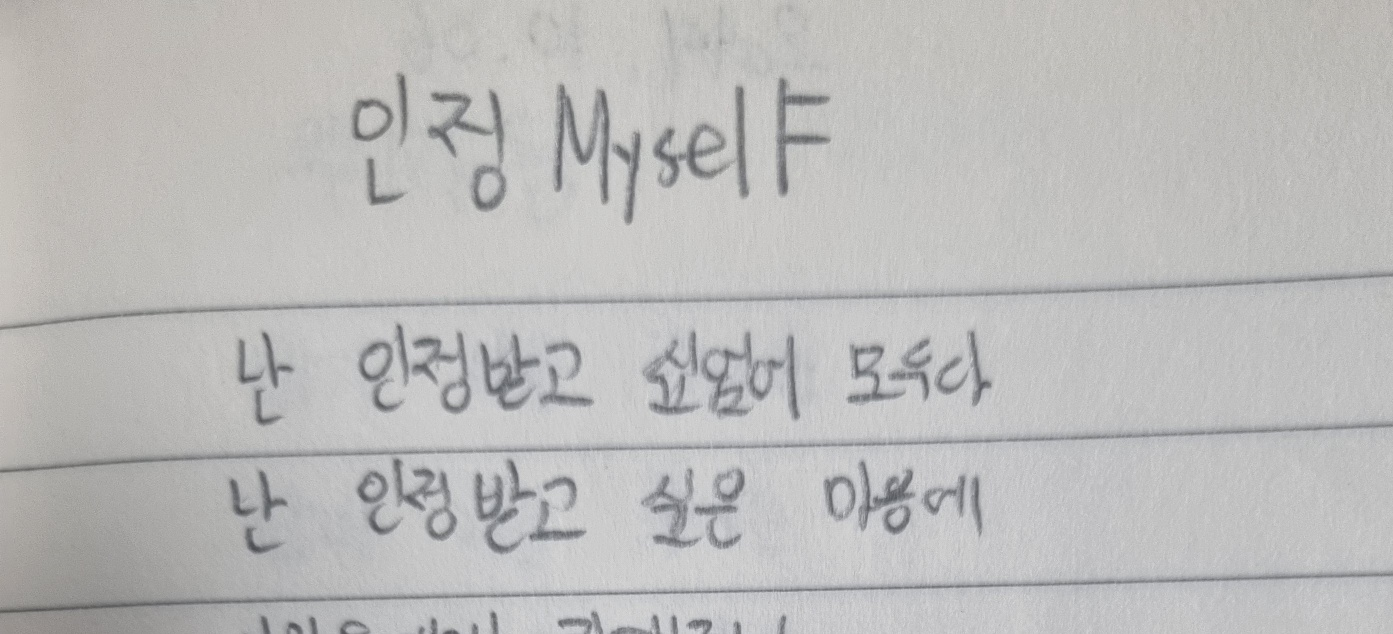 인정 MyselF
난 인정받고 싶었어 모두다
난 인정받고 싶은 마음에